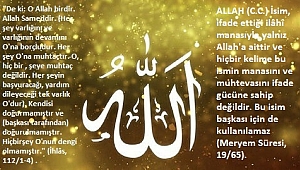 "De ki: O Allah birdir.
Allah Sameddir. (Her
şey varlığını ve
varlığının devamını
O'na borçludur. Her
şey O'na muhtaçtır. O,
hiç bir, şeye muhtaç
değildir. Her şeyin
başvuracağı, yardım
dileyeceği tek varlık
O'dur), Kendisi
doğurmamıştır ve
(başkası tarafından)
doğurulmamıştır.
Hiçbirşey O'nun dengi
olmamıştır." (İhlâs,
112/1-4) .
الله
ALLAH (C.C.) İsim,
ifade ettiği ilâhî
manasıyla, yalnız
Allah'a aittir ve
hiçbir kelime bu
ismin manasını ve
muhtevasını ifade
gücüne sahip
değildir. Bu isim
başkası için de
kullanılamaz
(Meryem Sûresi,
19/65).